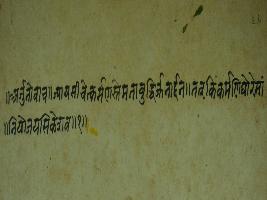 ॥अर्जुनोवाच॥ज्यायसीचेत्कर्मणस्तेमताबुद्धिर्जनार्दन॥तत्किंकर्मणिघोरेमां
॥नियोजयसिकेशव॥१॥